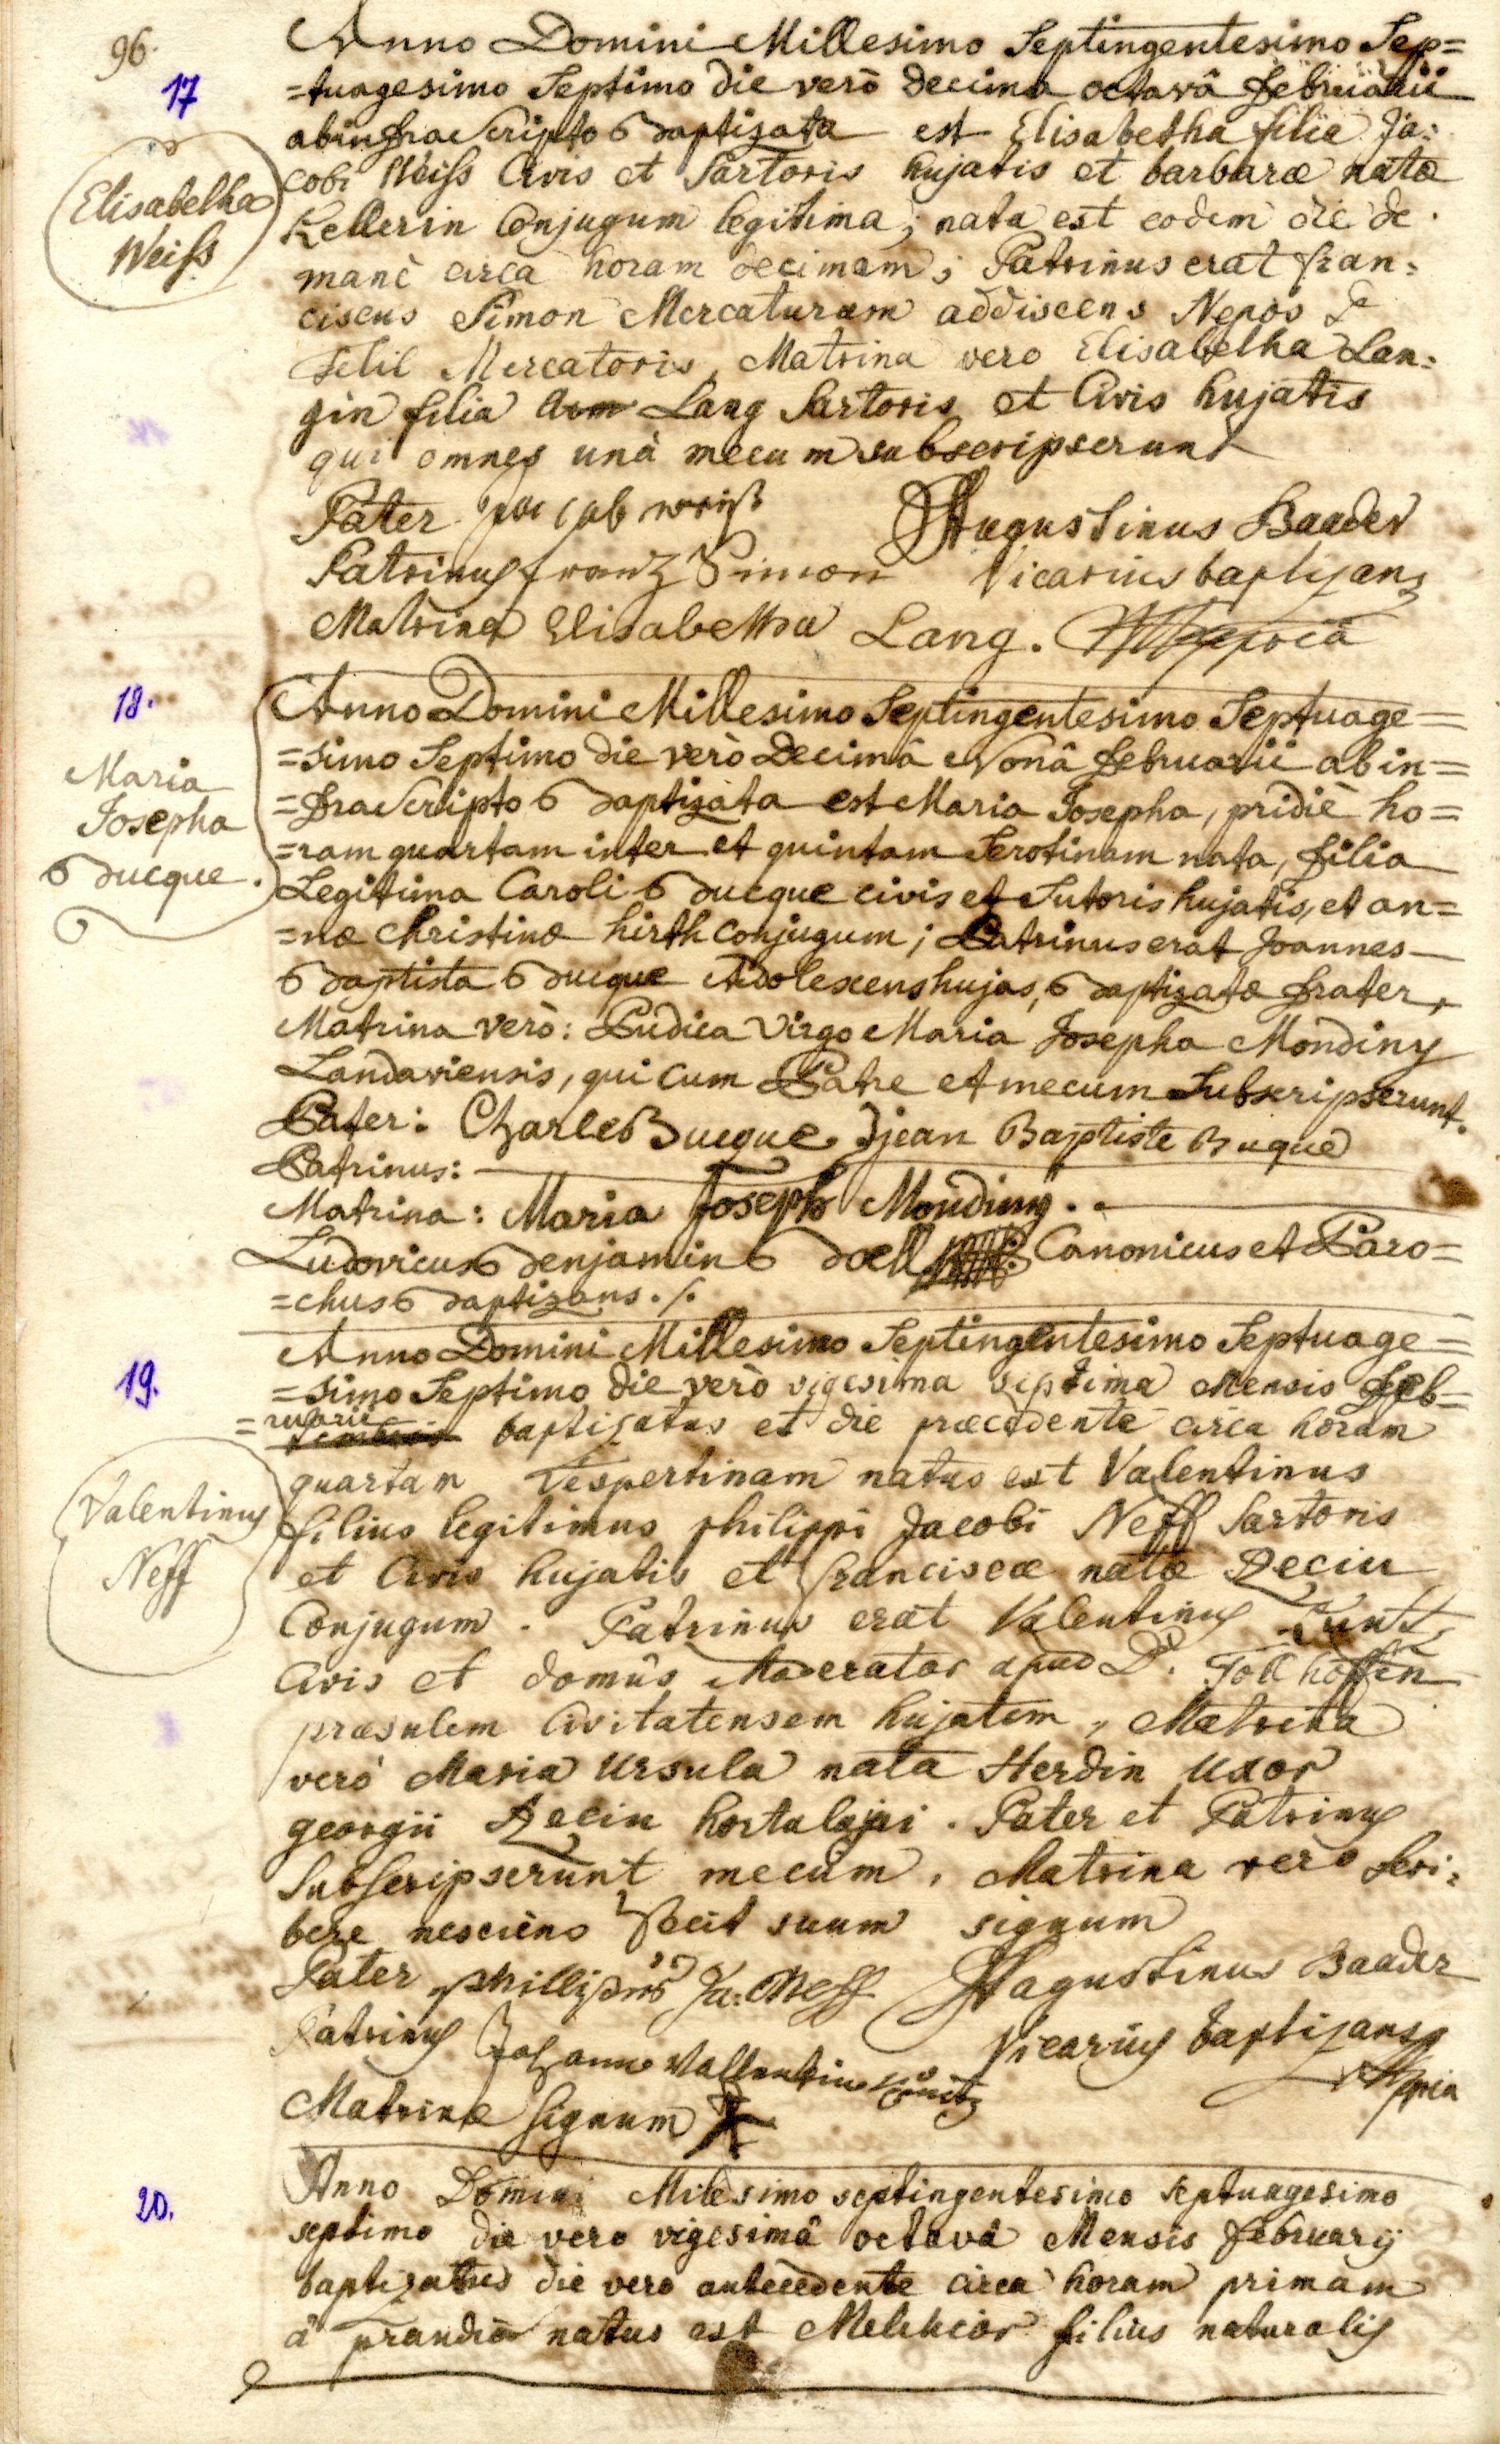 96.
17
Elisabetha
Weiss
Anno Domini Millesimo Septingentesimo Sep=
=tuagesimo Septimo die verò decima octavâ februarii
ab infra Scripto Baptizata est Elisabetha filia Ja:
cobi Weiss Civis et Sartoris hujatis et barbaræ natæ
Kellerin Conjugum legitima; nata est eodem die de
manè circa horam decimam; Patrinus erat fran:
ciscus Simon Mercaturam addiscens Nepos
Mercatoris, Matrina vero Elisabetha Lan:
gin filia Lang Sartoris et Civis hujatis
qui omnes unà mecum subscripserunt
Pater Jacob weiß Augustinus Baader
Patrinus franz Simon Vicarius baptizans
Matrina Elisabetha Lang. Mppriâ
18.
Maria
Josepha
Bucque.
Anno Domini Millesimo Septingentesimo Septuage=
=simo Septimo die verò Decimâ Nonâ februarii ab in=
=fra Scripto Baptizata est Maria Josepha, pridiè ho=
=ram quartam inter et quintam Serotinam nata, filia
Legitima Caroli Bucque civis et Sutoris hujatis, et an=
=næ Christinæ hirth Conjugum; Patrinus erat Joannes
Baptista Bucque Adolescens hujas, Baptizatæ frater,
Matrina verò: Pudica Virgo Maria Josepha Mondiny
Landaviensis, qui cum Patre et mecum Subscripserunt.
Pater: Charle Bucque jean Baptiste Buque
Patrinus:
Matrina: Maria Joseph Mondiny.
Ludovicus Benjamin Boell Canonicus et Paro=
=chus Baptizans ./.
19.
Valentinus
Neff
Anno Domini Millesimo Septingentesimo Septuage=
=simo Septimo die verò vigesima septima Mensis Feb=
=ruarii baptizatus et die præcedente circa horam
quartam Vespertinam natus est Valentinus
filius legitimus philippi Jacobi Neff Sartoris
et Civis hujatis et franciscæ natæ Zecin
Conjugum. Patrinus erat Valentinus
Civis et domûs Moderator apud D. Tollhoffen
præsulem Civitatensem hujatem, Matrina
verò Maria Ursula nata Herdin Uxor
georgii Zecin hortulani. Pater et Patrinus
Subscripserunt mecum, Matrina verò Scri:
bere nesciens fecit suum signum
Pater phillipus Ja: Neff Augustinus Baader
Patrinus Johanns Vallentin Vicarius baptizans
Matrinæ Signum mppria
20.
Anno Domini Milesimo septingentesimo septuagesimo
septimo die vero vigesimâ octavâ Mensis februarij
baptizatus die vero antecedente circa horam primam
â prandio natus est Melchior filius naturalis